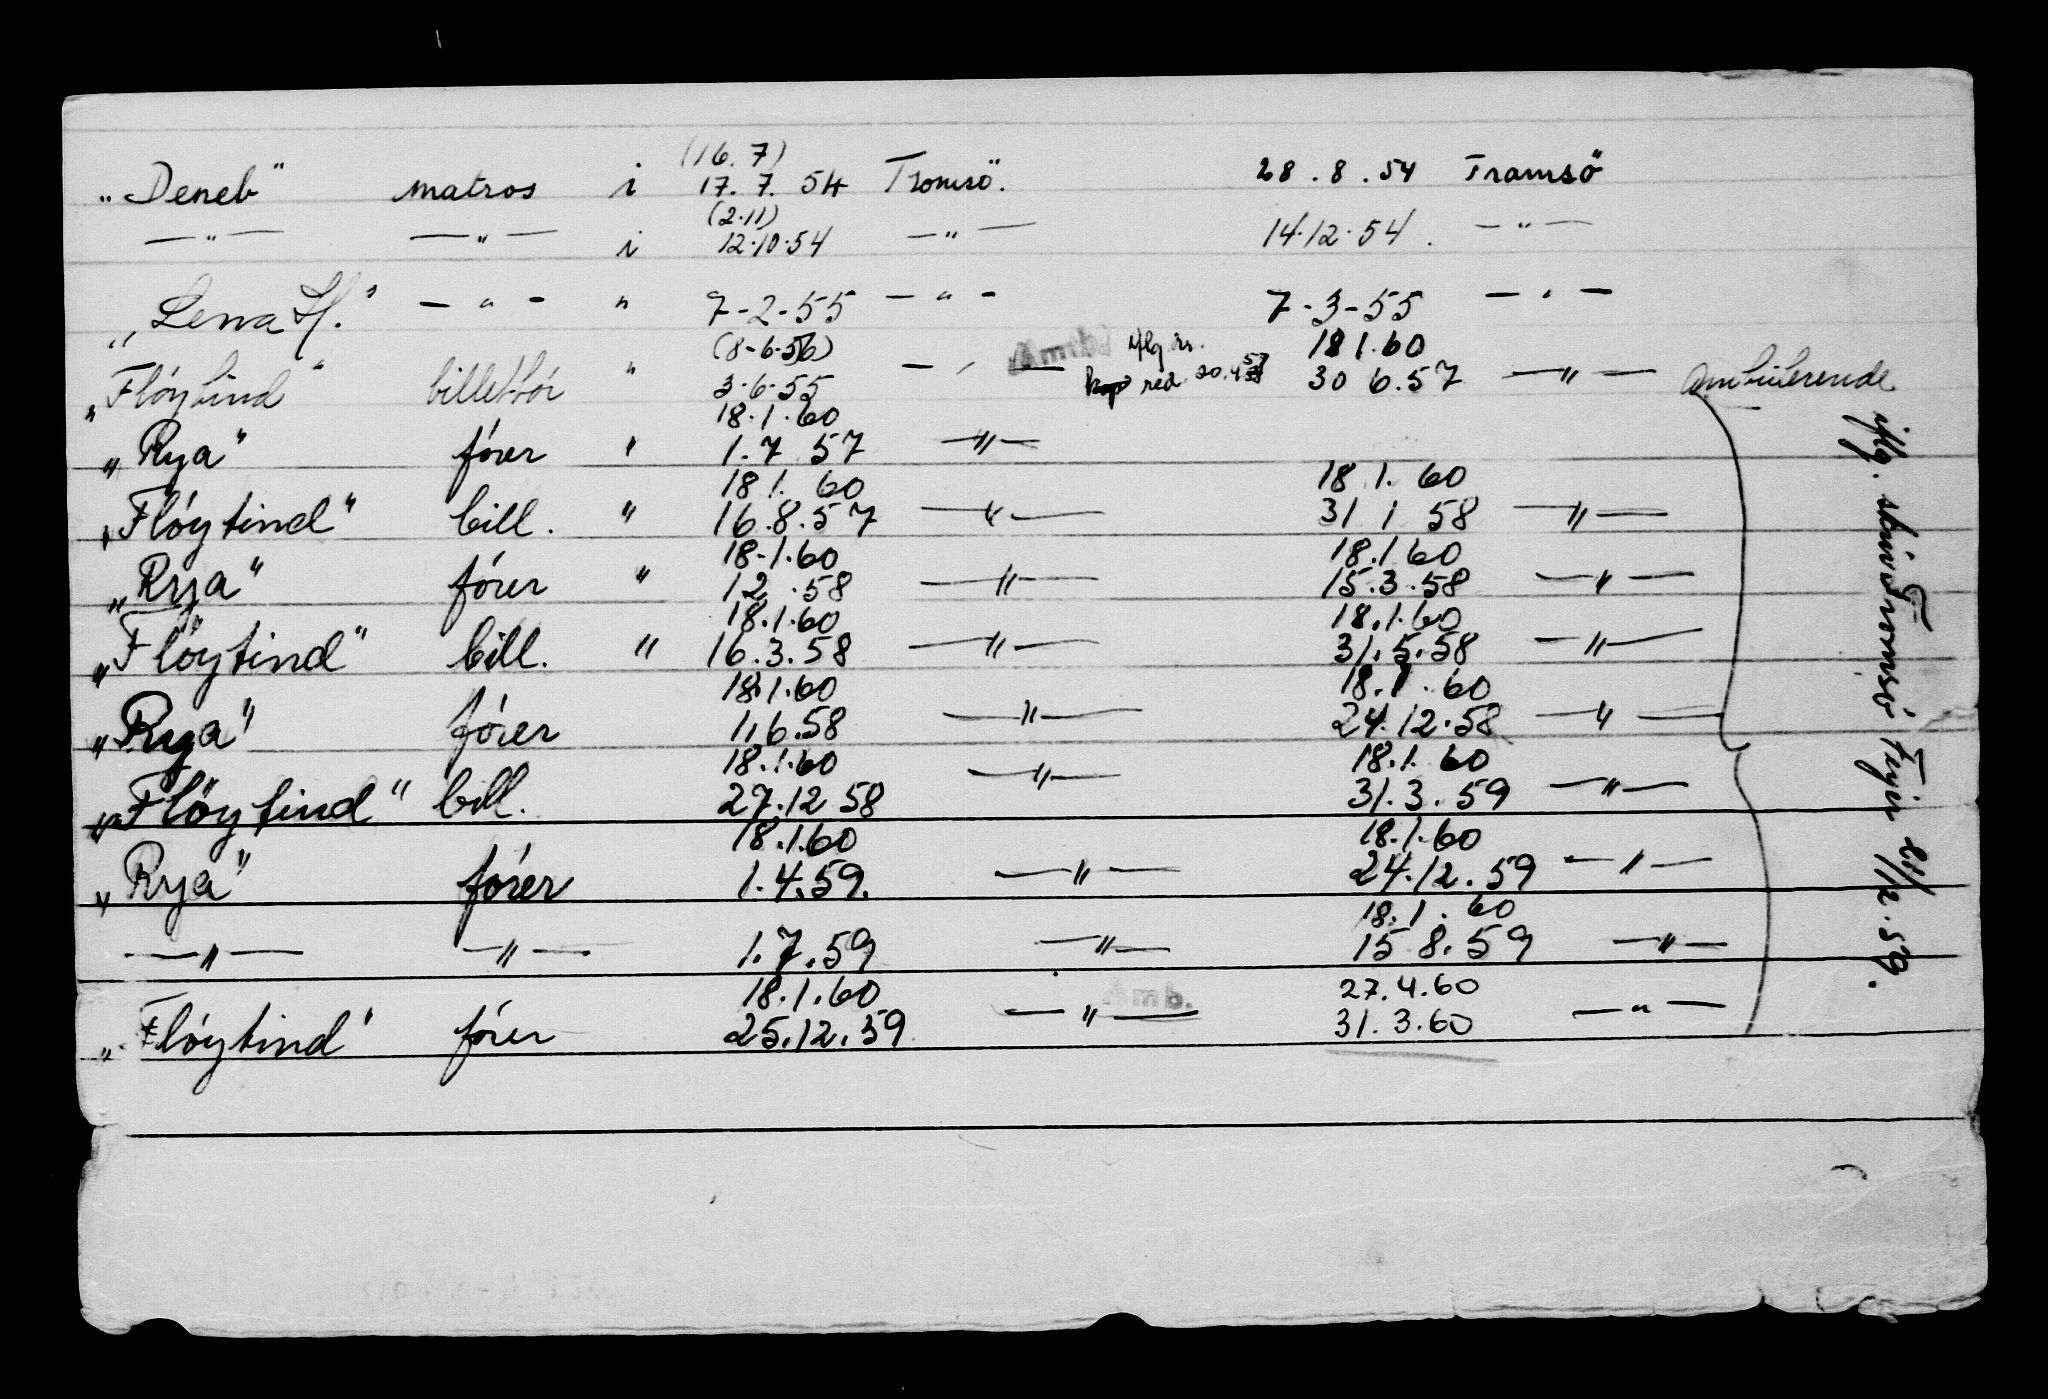 (16.7)
„Deneb" matros i 17.7.54 Tromsö. 28.8.54 Tromsö
(2.11)
—"— —"— i 12.10.54 —"— 14.12.54. —"—
„Lena H." —"— " 7-2-55 —"— 7-3-55 —"—
(8-6-56) Amb. iflg. 18 1.60
„Fløytind" billettør " 3.6.55 —"— red. 30.4.57 30 6.57 —"— ambulerende
18.1.60
„Rya" fører " 1.7 57 —"—
18 1. 60 18 1. 60
„Fløytind" bill. " 16.8.57 —"— 31 1 58 —"—
18.1.60 18.1 60
„Rya" fører " 12 .58 —"— 15.3.58 —"—
18.1.60 18.1.60
„Fløytind" bill. " 16.3.58 —"— 31.5.58 —"—
18.1.60 18.1.60
„Rya" fører 1.6.58 —"— 24.12.58 —"—
18.1.60 18.1.60
„Fløytind" bill. 27.12 58 —"— 31.3.59 —"—
18.1.60 18.1.60
„Rya" fører 1.4.59. —"— 24.12.59 —"—
18.1.60
—"— —"— 1.7.59 —"— 15 8.59 —"—
18.1.60 Amb. 27.4.60
„Fløytind" fører 25.12.59 —"— 31.3.60 —"—
iflg. skriv Tromsø 21/12.59.